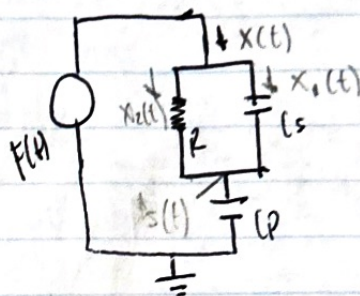 x(t)
x₂(t)
x₁(t)
R
Cs
F(t)
s(t)
Cp